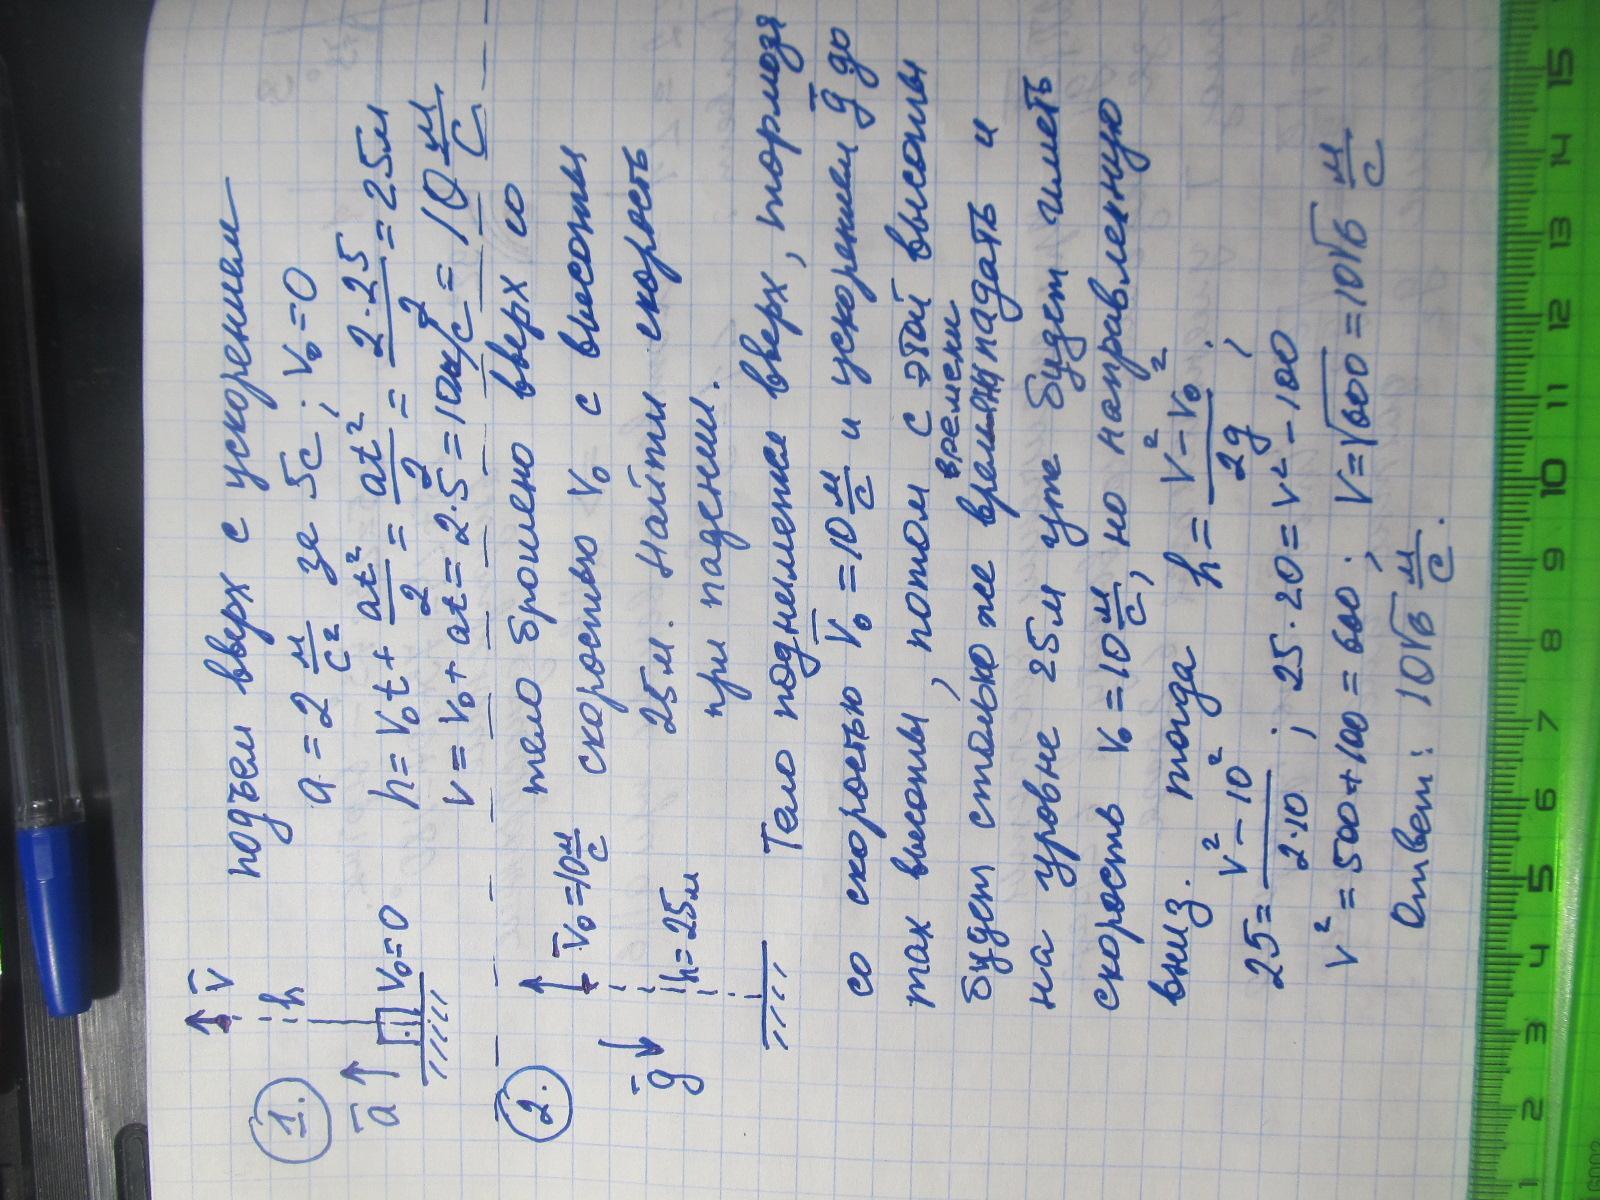 1.
подъем вверх с ускорением
a = 2 м/с² за 5с ; v₀=0
h = v₀t + at²/2 = at²/2 = 2·25/2 = 25м
v = v₀ + at = 2·5 = 10м/с = 10 м/с
v̄
h
ā
v₀=0
2.
v̄₀=10 м/с
h=25м
ḡ
тело брошено вверх со
скоростью v₀ с высоты
25м. Найти скорость
при падении.
Тело поднимется вверх, тормозя
со скоростью v̄₀ = 10 м/с и ускорением ḡ до
max высоты, потом с этой высоты
времени
будет столько же падать и
на уровне 25м уже будет иметь
скорость v₀ = 10 м/с, но направленную
вниз. тогда h = (v² − v₀²)/2g ;
25 = (v² − 10²)/2·10 ; 25·20 = v² − 100
v² = 500 + 100 = 600 ; v = √600 = 10√6 м/с
Ответ: 10√6 м/с.
1 2 3 4 5 6 7 8 9 10 11 12 13 14 15